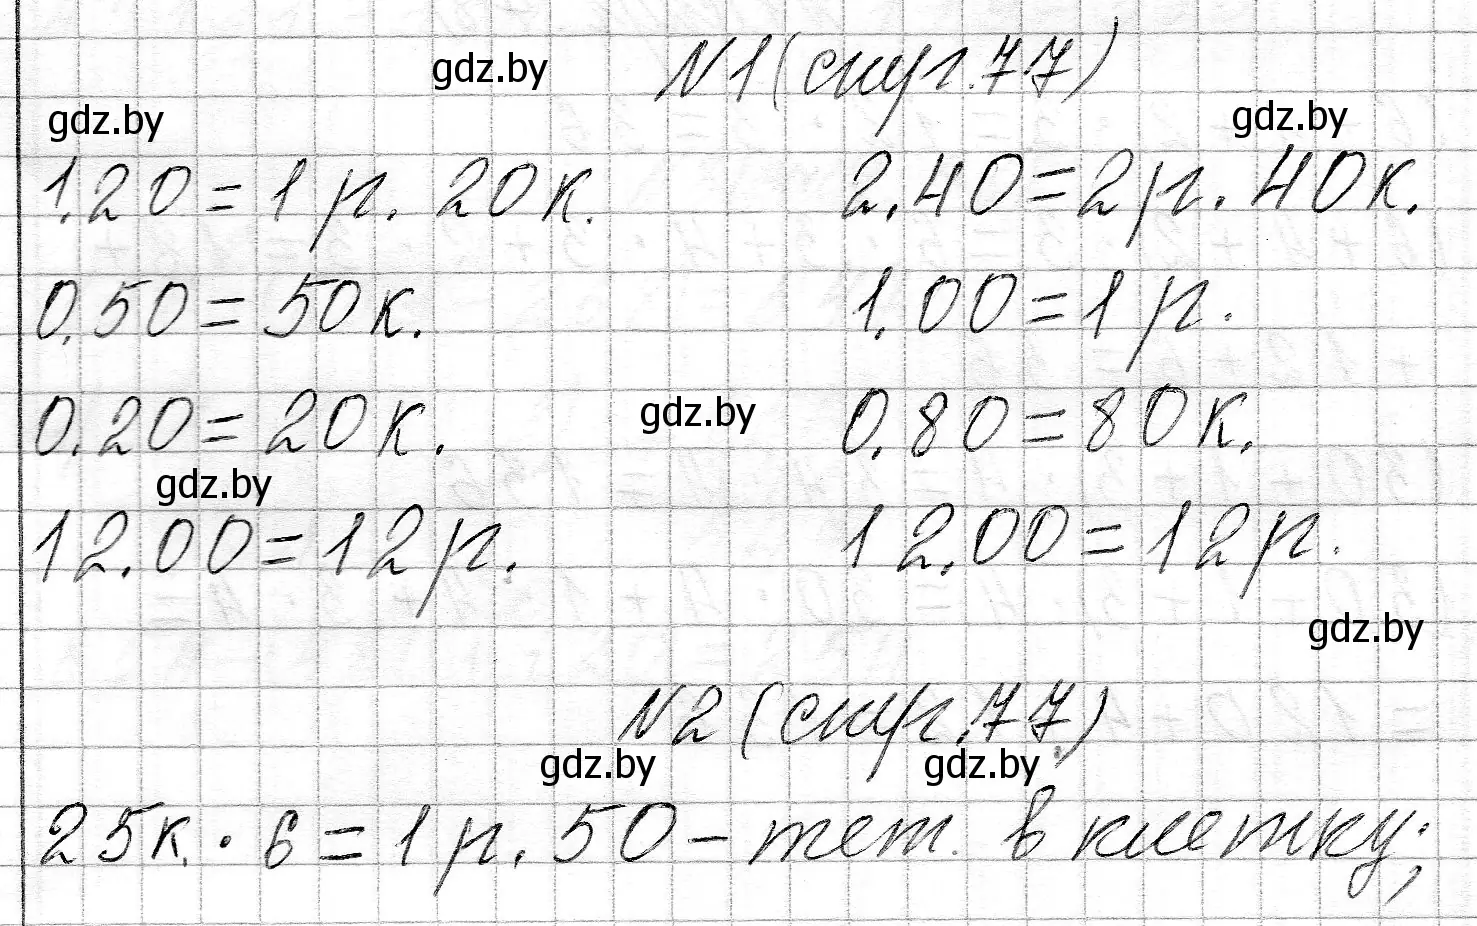 gdz.by
№1 (стр. 77)
gdz.by
gdz.by
1.20 = 1 р. 20 к.
2.40 = 2 р. 40 к.
0.50 = 50 к.
1.00 = 1 р.
0.20 = 20 к.
gdz.by
0.80 = 80 к.
gdz.by
12.00 = 12 р.
12.00 = 12 р.
gdz.by
№2 (стр. 77)
gdz.by
gdz.by
25 к. · 6 = 1 р. 50 – тет. в клетку;